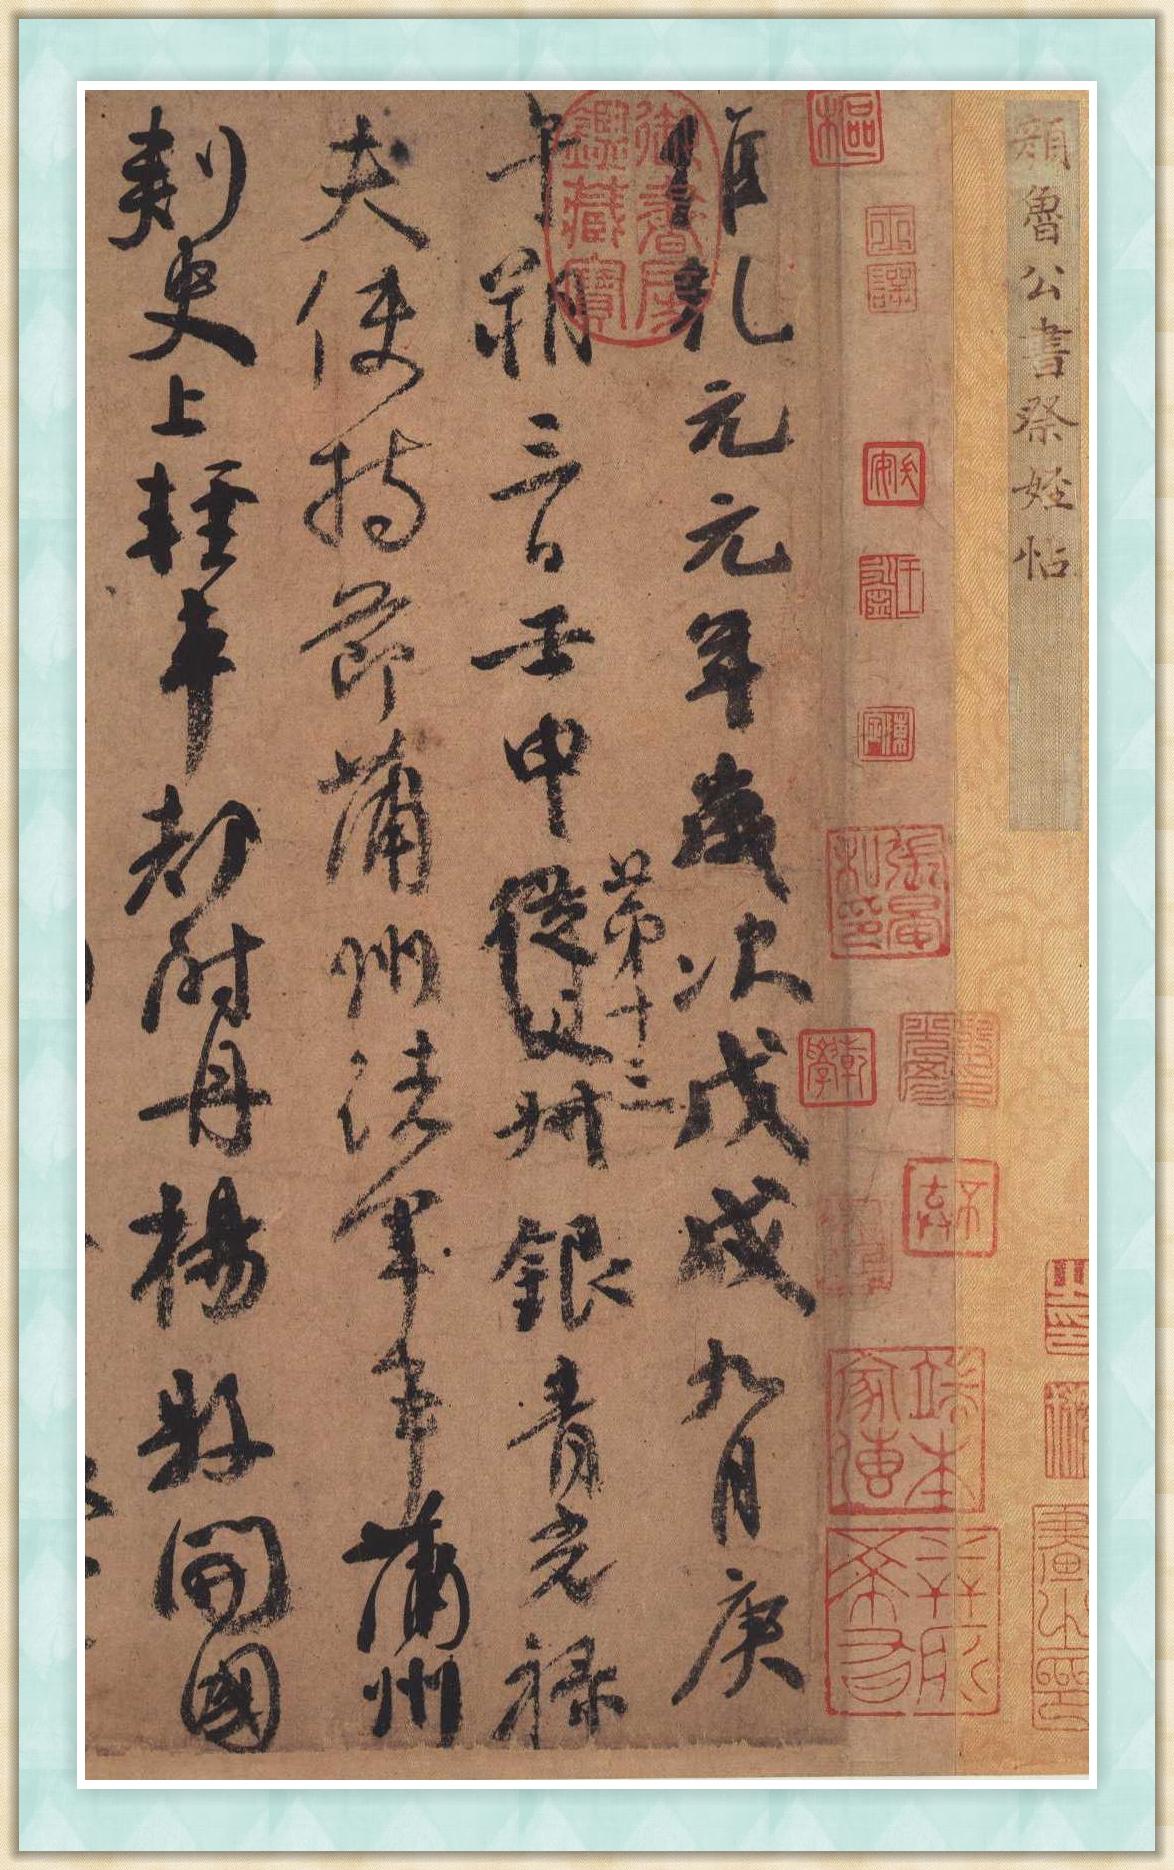 顏魯公書祭姪帖
維乾元元年歲次戊戌九月庚
午朔三日壬申
第十三
從父叔銀青光祿
夫使持節蒲州諸軍事蒲州
刺史上輕車都尉丹楊縣開國
御書房鑑藏寶
張晏私印
乾學
端本家傳